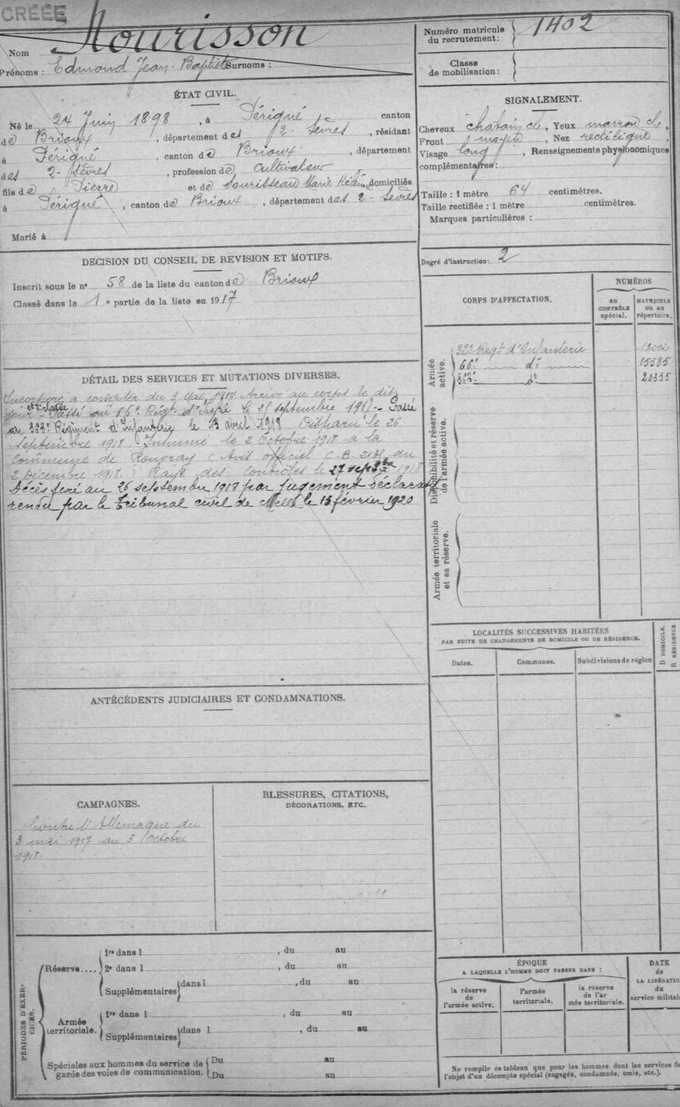 CRÉÉE
Nourisson
Nom
Prénoms : Edmond Jean-Baptiste Surnoms :
Numéro matricule du recrutement : 1402
Classe de mobilisation :
ÉTAT CIVIL.
Né le 24 Juin 1898, à Périgné canton
de Brioux, département des 2-Sèvres, résidant
à Périgné, canton de Brioux département
des 2-Sèvres, profession de Cultivateur
fils de Pierre et de Marie domiciliés
à Périgné, canton de Brioux, département des 2-Sèvres
Marié à
SIGNALEMENT.
Cheveux châtain cl Yeux marron cl
Front moyen Nez rectiligne
Visage long Renseignements physionomiques
complémentaires :
Taille : 1 mètre 64 centimètres.
Taille rectifiée : 1 mètre centimètres.
Marques particulières :
Degré d'instruction : 2
DÉCISION DU CONSEIL DE REVISION ET MOTIFS.
Inscrit sous le nº 58 de la liste du canton de Brioux
Classé dans la 1e partie de la liste en 1917
CORPS D'AFFECTATION.
NUMÉROS
AU CONTRÔLE SPÉCIAL.
MATRICULE OU AU RÉPERTOIRE.
Armée active.
Régt d'Infanterie
66e dº 15335
333e dº
Disponibilité et réserve de l'armée active.
Armée territoriale et sa réserve.
DÉTAIL DES SERVICES ET MUTATIONS DIVERSES.
Incorporé à compter du 3 Mai 1917 Arrivé au corps le dit
jour Passé au 66e Régt d'Infrie le 21 septembre 1917 - Passé
au 333e Régiment d'Infanterie le 13 avril 1918 Disparu le 26
septembre 1918 Inhumé le 2 Octobre 1918 à la
commune de Rouvroy (Avis officiel C.B. du
2 Décembre 1918) Rayé des contrôles le 27 septbre 1918
Décès fixé au 26 septembre 1918 par jugement déclaratif
rendu par le Tribunal civil de Melle le 13 février 1920
LOCALITÉS SUCCESSIVES HABITÉES
PAR SUITE DE CHANGEMENTS DE DOMICILE OU DE RÉSIDENCE.
Dates.
Communes.
Subdivisions de région
D. DOMICILE.
R. RÉSIDENCE
ANTÉCÉDENTS JUDICIAIRES ET CONDAMNATIONS.
CAMPAGNES.
Contre l'Allemagne du
3 mai 1917 au 3 Octobre
1918
BLESSURES, CITATIONS,
DÉCORATIONS, ETC.
PÉRIODES D'EXERCICES.
Réserve....
1re dans l , du au
2e dans l , du au
Supplémentaires dans l , du au
Armée territoriale.
1re dans l , du au
Supplémentaires dans l , du au
Spéciales aux hommes du service de garde des voies de communication.
Du au
Du au
ÉPOQUE
A LAQUELLE L'HOMME DOIT PASSER DANS :
la réserve de l'armée active.
l'armée territoriale.
la réserve de l'armée territoriale.
DATE
de
LA LIBÉRATION
du
service militaire
Ne remplir ce tableau que pour les hommes dont les services
l'objet d'un décompte spécial (engagés, condamnés, omis, etc.).